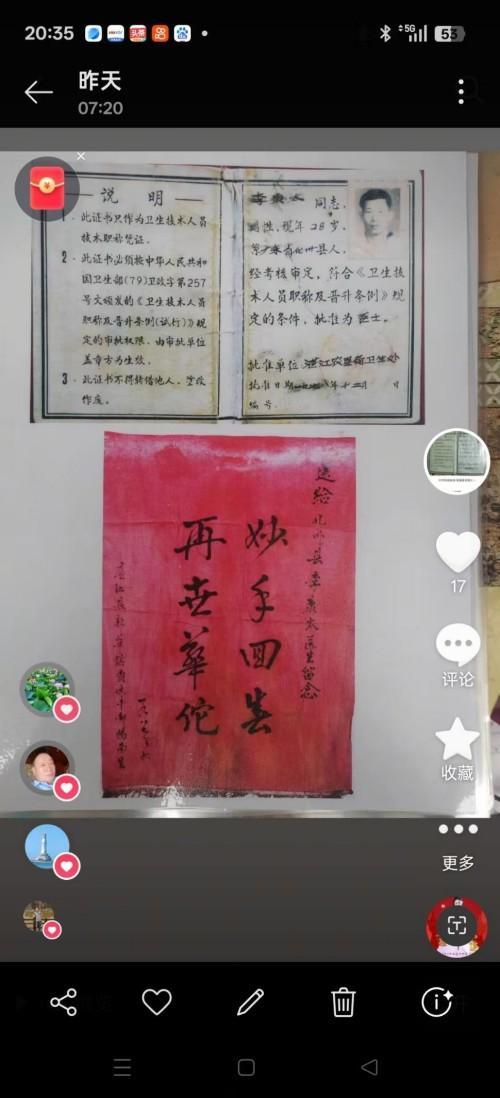 20:35
5G
53
昨天
07:20
说 明
1. 此证书只作为卫生技术人员
技术职称凭证。
2. 此证书必须按中华人民共和
国卫生部(79)卫政字第257
号文颁发的《卫生技术人员
职称及晋升条例(试行)》规
定的审批权限，由审批单位
盖章方为生效。
3. 此证书不得转借他人，涂改
作废。
同志，
性，现年28岁，
县人，
经考核审定，符合《卫生技
术人员职称及晋升条例》规
定的条件，批准为医士。
批准单位
批准日期
编号
送给化州县李康太医生留念
妙手回春
再世华佗
17
评论
收藏
更多